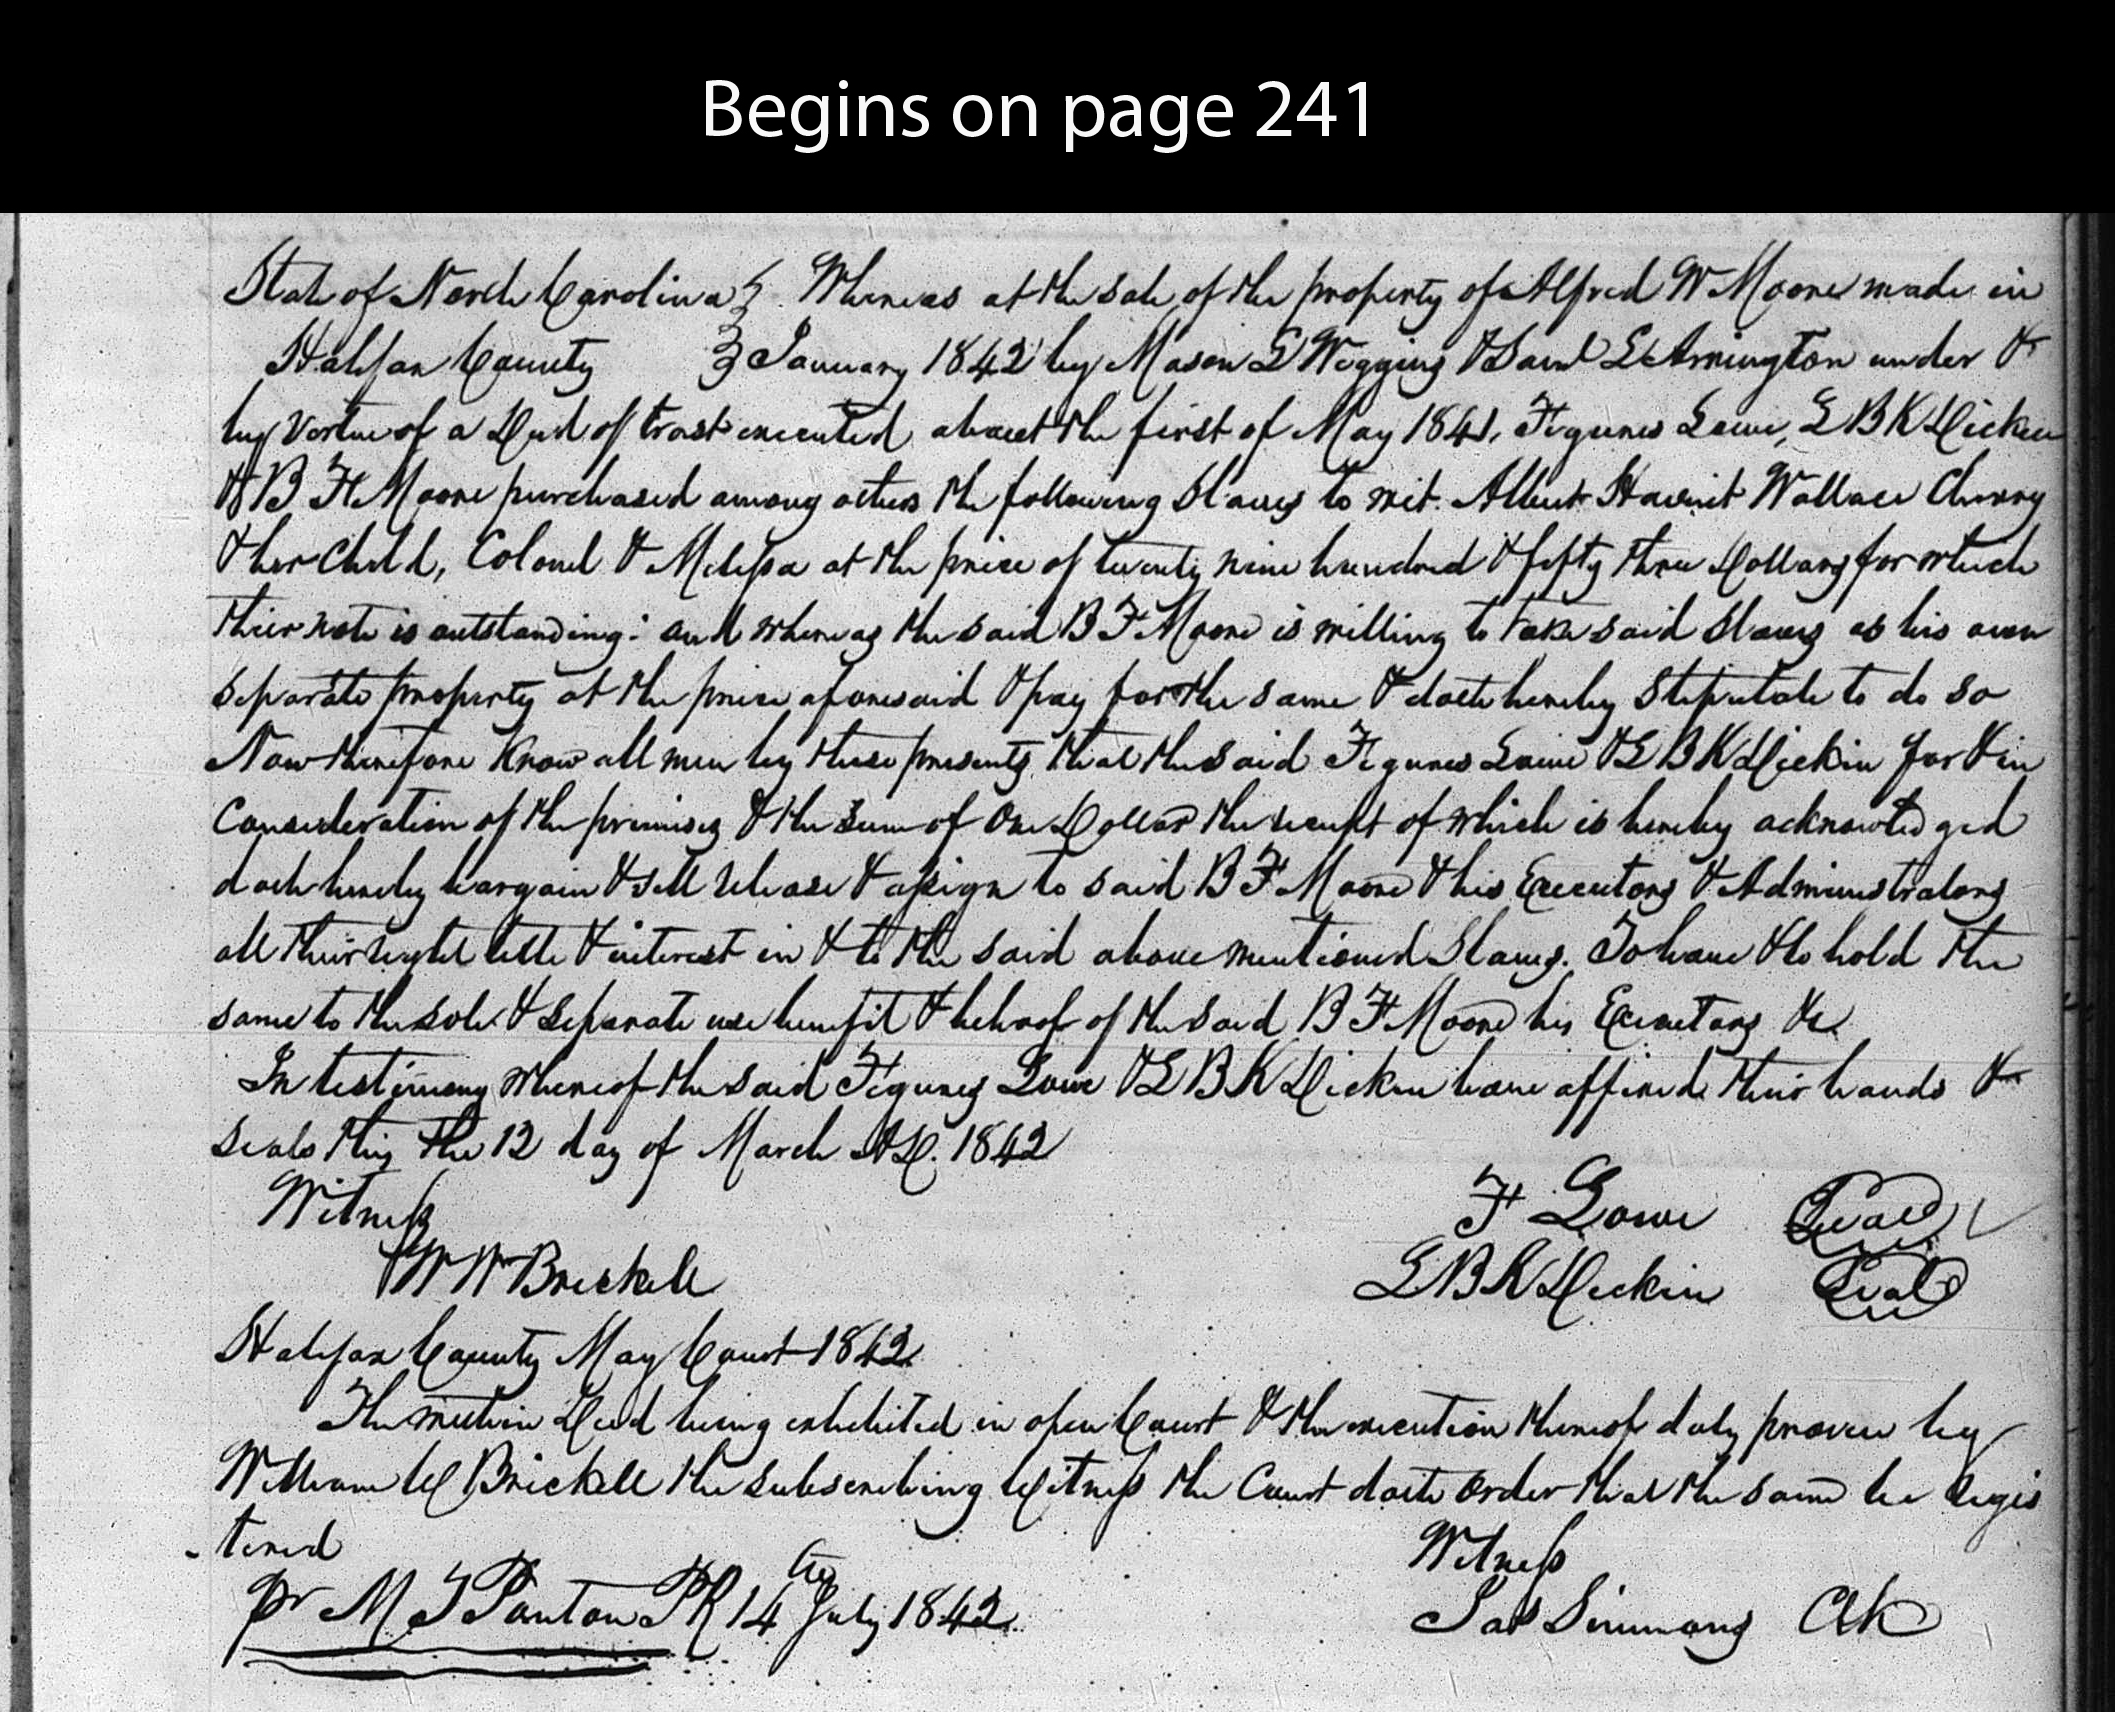 Begins on page 241
State of North Carolina } Whereas at the sale of the property of Alfred W Moore made in
Halifax County } January 1842 by Mason L Wiggins & Saml L Arrington under &
by virtue of a Deed of trust executed about the first of May 1841, Figures Lowe, L B K Dicken
& B F Moore purchased among others the following Slaves to wit. Albert Wallace Cherry
& her Child, Colonel & Melissa at the price of twenty nine hundred & fifty three Dollars for which
their note is outstanding: and whereas the said B F Moore is willing to take said Slaves as his own
separate property at the price aforesaid & pay for the same & doeth hereby Stipulate to do so
Now therefore Know all men by these presents, that the said Figures Lowe & L B K Dickin for & in
Consideration of the premises & the sum of One Dollar the receipt of which is hereby acknowledged
doeth hereby bargain & sell release & assign to said B F Moore & his Executors & Administrators
all their right title & interest in & to the said above mentioned Slaves. To have & to hold the
same to the sole & separate use benefit & behoof of the said B F Moore his Executors &c
In testimony whereof the said Figures Lowe & L B K Dicken have affixed their hands &
seals this the 12 day of March AD. 1842
Witness F Lowe Seal
W W Brickell L B K Dickin Seal
Halifax County May Court 1842
The within Deed being exhibited in open Court & the execution thereof duly proven by
William W Brickell the subscribing Witness the Court doeth order that the same be Regis
-tered Witness
pr M T Ponton PR 14th July 1842 Jas Simmons Clk